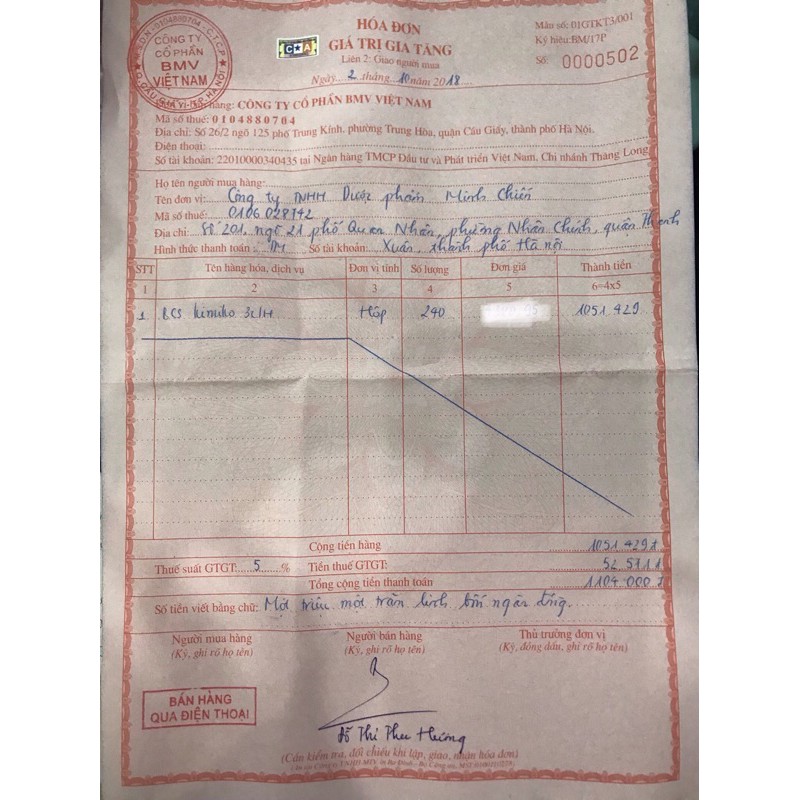 HÓA ĐƠN
GIÁ TRỊ GIA TĂNG
Liên 2: Giao người mua
Ngày 2 tháng 10 năm 2018
Mẫu số: 01GTKT3/001
Ký hiệu: BM/17P
Số: 0000502
CÔNG TY
CỔ PHẦN
BMV
VIỆT NAM
C★A
hàng: CÔNG TY CỔ PHẦN BMV VIỆT NAM
Mã số thuế: 0104880704
Địa chỉ: Số 26/2 ngõ 125 phố Trung Kính, phường Trung Hòa, quận Cầu Giấy, thành phố Hà Nội.
Điện thoại:
Số tài khoản: 22010000340435 tại Ngân hàng TMCP Đầu tư và Phát triển Việt Nam, Chi nhánh Thăng Long
Họ tên người mua hàng:
Tên đơn vị: Công ty TNHH Dược phẩm Minh Chiến
Mã số thuế: 0106028742
Địa chỉ: Số 201, ngõ 21 phố Quan Nhân, phường Nhân Chính, quận Thanh
Hình thức thanh toán: TM Số tài khoản: Xuân, thành phố Hà Nội
STT Tên hàng hóa, dịch vụ Đơn vị tính Số lượng Đơn giá Thành tiền
1 2 3 4 5 6=4x5
1 BCS Kimiko 3c/H Hộp 240 1051 429
Cộng tiền hàng 1051 429đ
Thuế suất GTGT: 5 % Tiền thuế GTGT: 52 571
Tổng cộng tiền thanh toán 1104 000đ
Số tiền viết bằng chữ: Một triệu một trăm linh bốn ngàn đồng.
Người mua hàng Người bán hàng Thủ trưởng đơn vị
(Ký, ghi rõ họ tên) (Ký, ghi rõ họ tên) (Ký, đóng dấu, ghi rõ họ tên)
BÁN HÀNG
QUA ĐIỆN THOẠI
Đỗ Thị Thu Hương
(Cần kiểm tra, đối chiếu khi lập, giao, nhận hóa đơn)